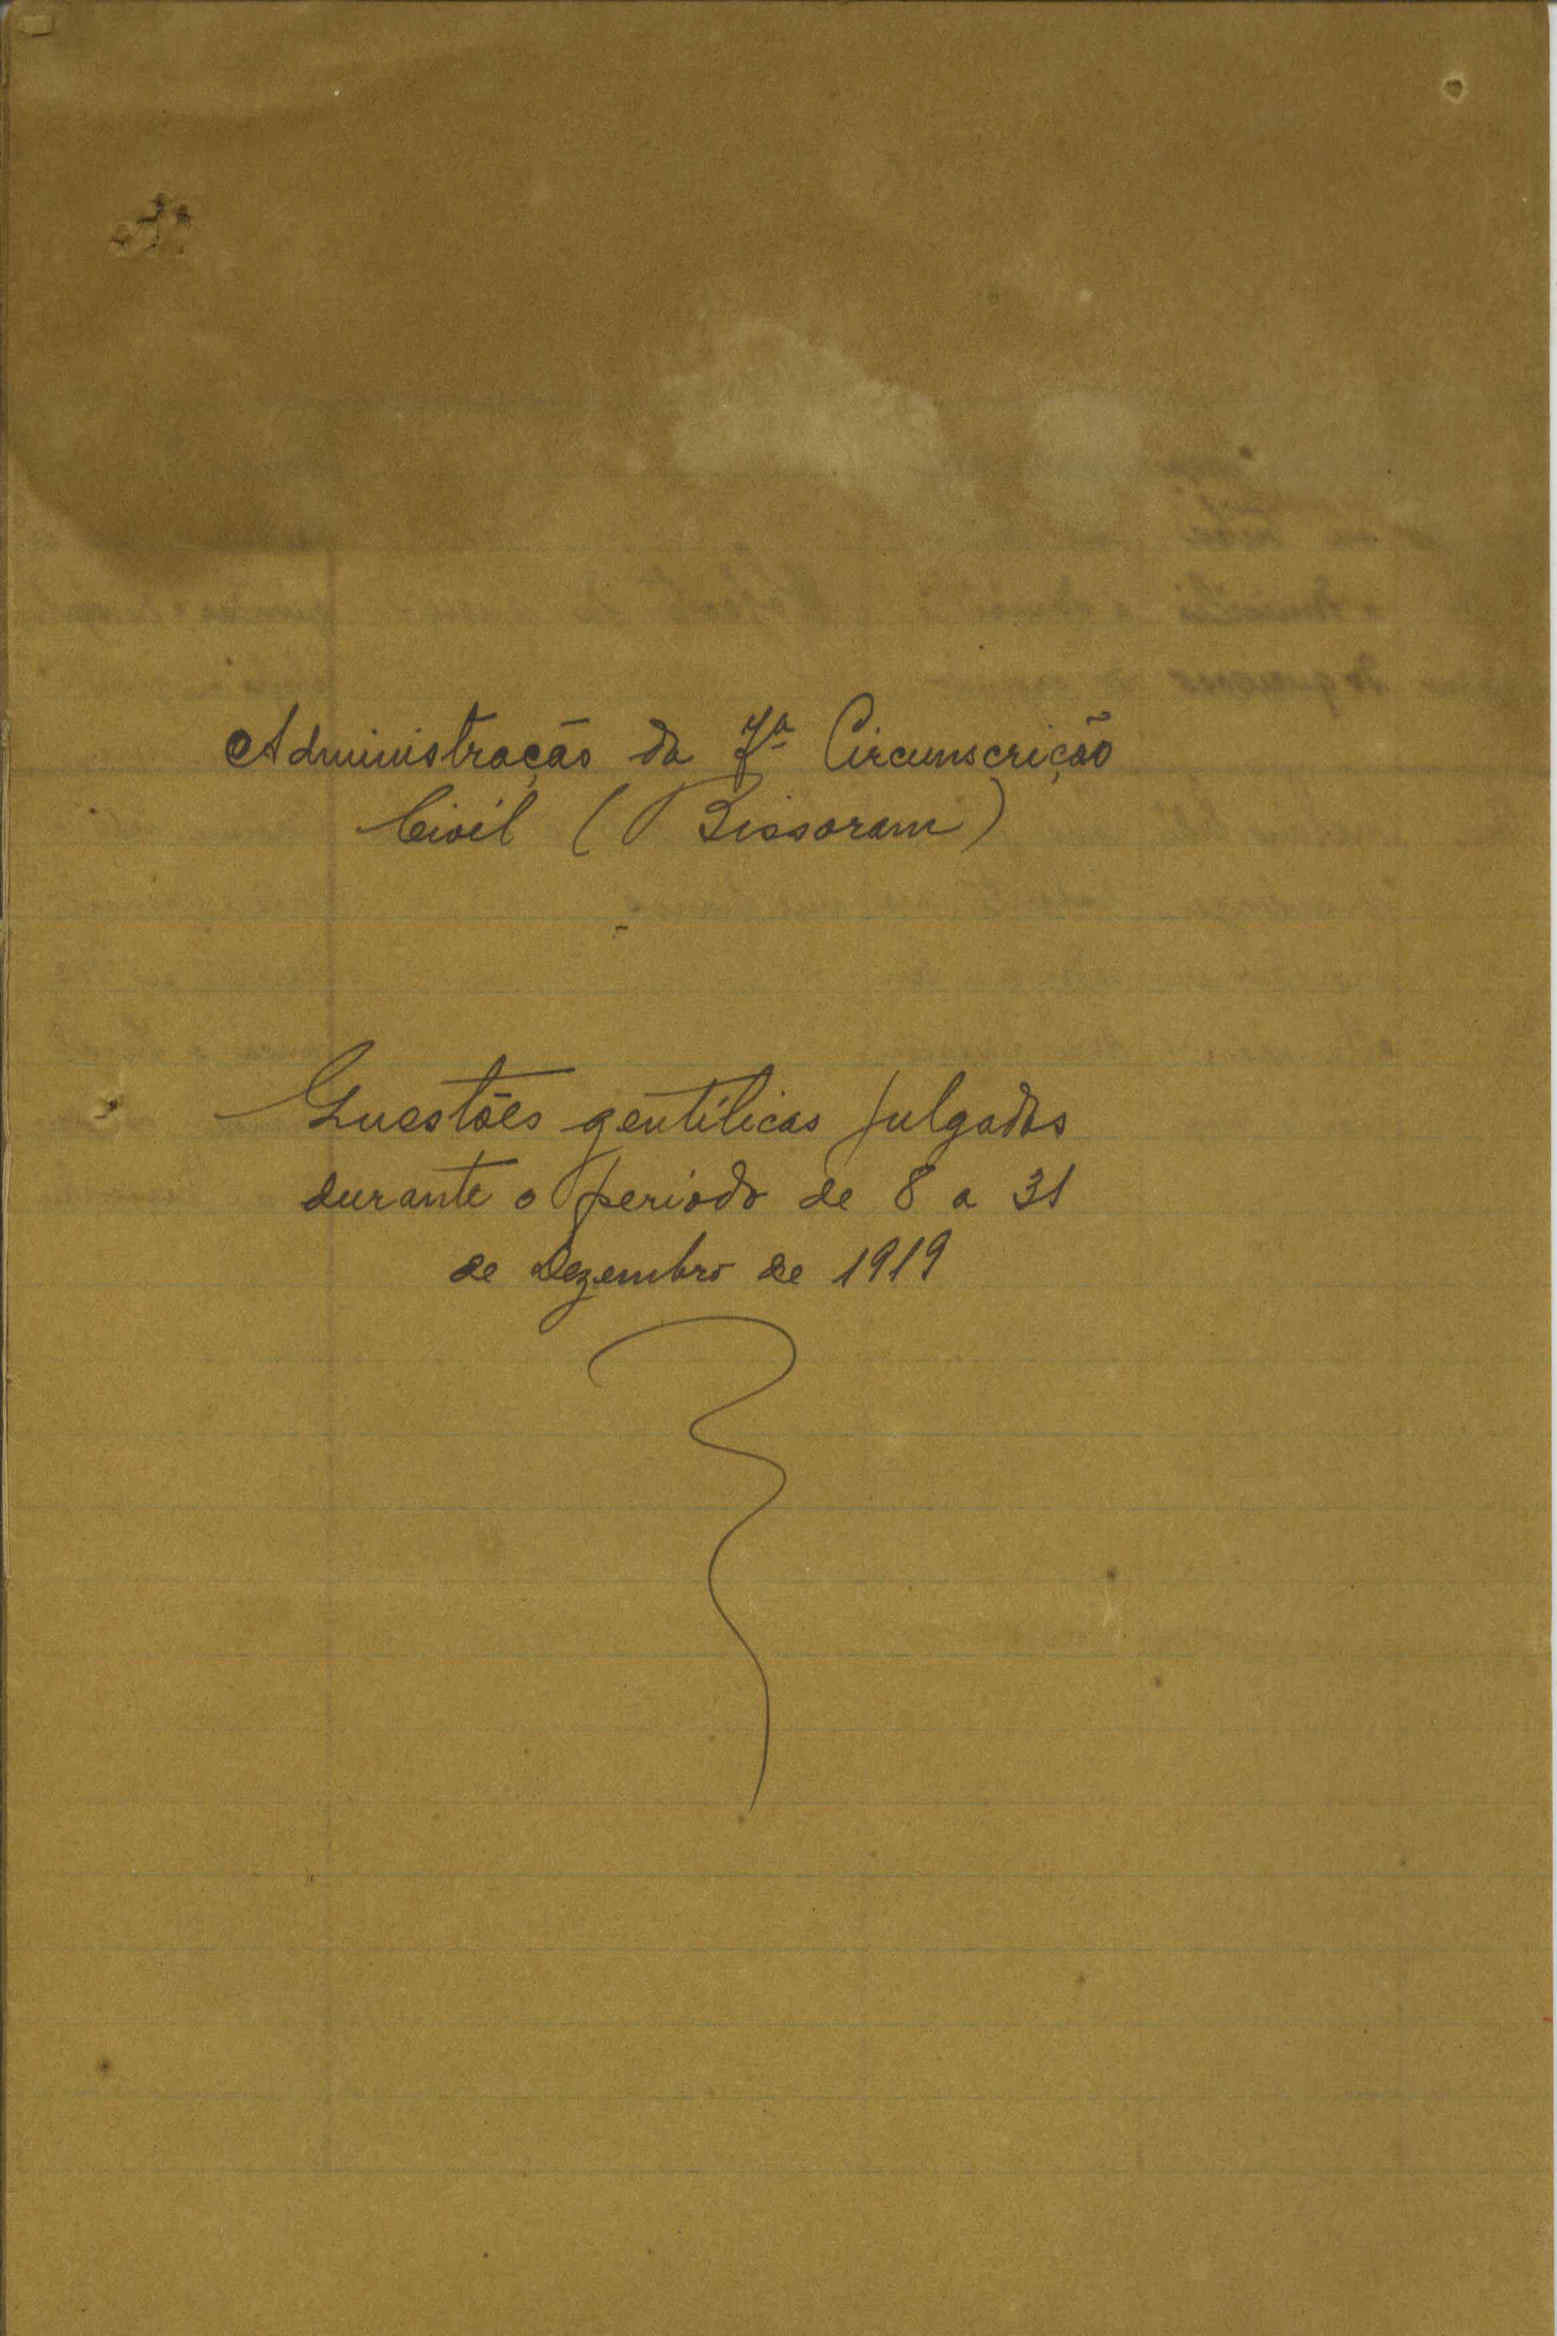 Administração da 7ª Circunscrição
Civil (Bissoram)
Questões gentílicas julgadas
durante o periodo de 8 a 31
de Dezembro de 1919